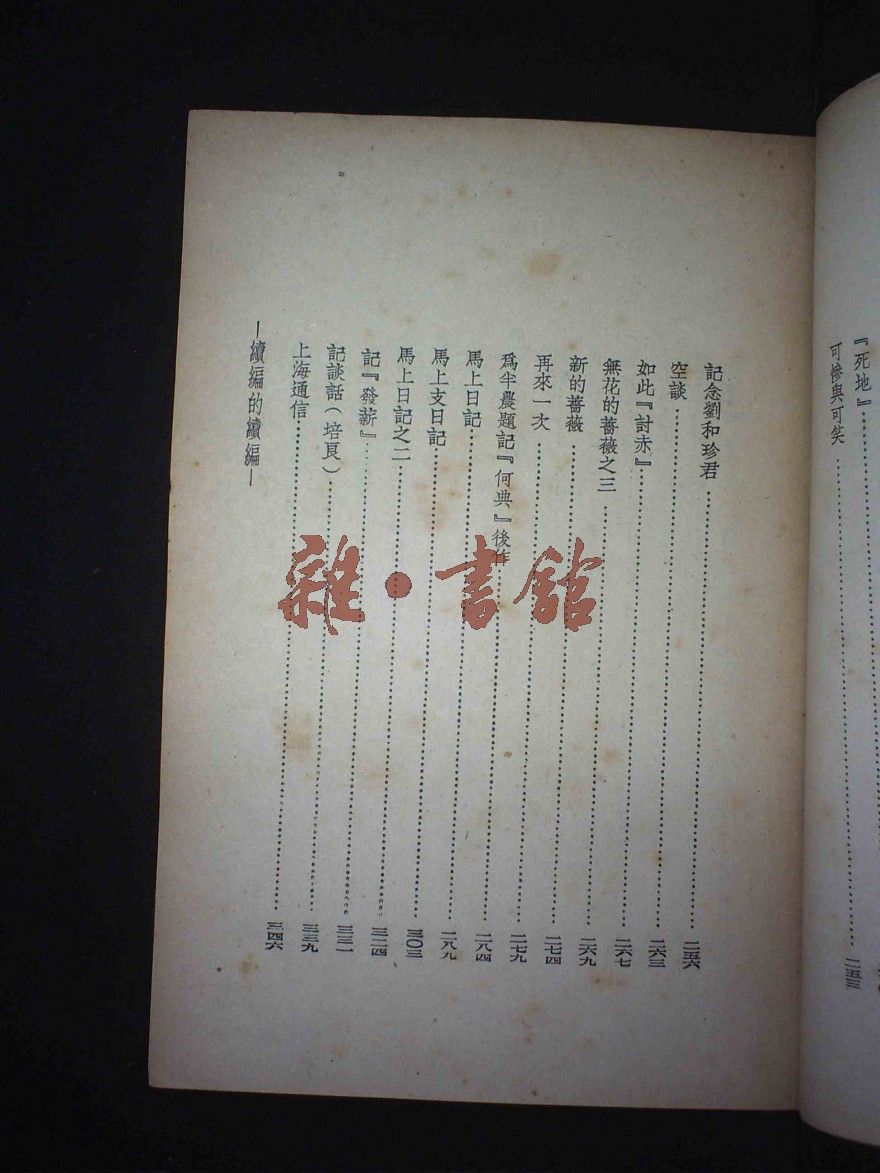 『死地』
可慘與可笑 二五三
記念劉和珍君 二五六
空談 二六三
如此『討赤』 二六七
無花的薔薇之三 二六九
新的薔薇 二七四
再來一次 二七九
爲半農題記『何典』後作 二八四
馬上日記 二八九
馬上支日記 三〇三
馬上日記之二 三二四
記『發薪』 三三一
記談話(培良) 三三九
上海通信 三四六
—續編的續編—
雜·書館